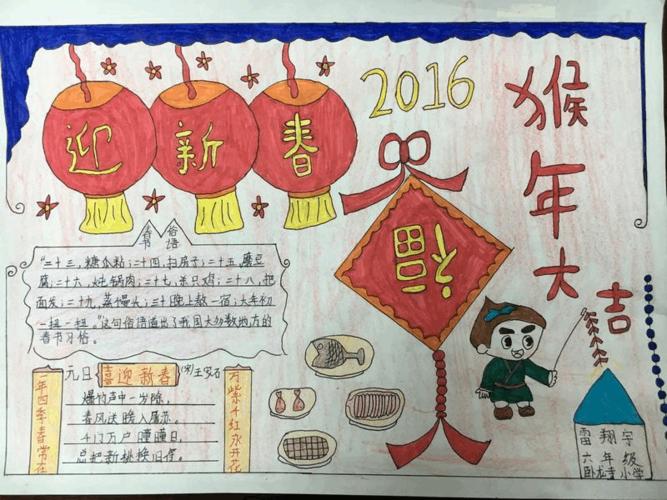 迎新春
2016
猴年大吉
福
春节 俗语
"二十三，糖瓜粘；二十四，扫房子；二十五，磨豆
腐；二十六，炖锅肉；二十七，杀只鸡；二十八，把
面发；二十九，蒸馒头；三十晚上熬一宿；大年初
一扭一扭。"这句俗语道出了我国大多数地方的
春节习俗。
元日 喜迎新春 (宋)王安石
一年四季春常在
爆竹声中一岁除，
春风送暖入屠苏。
千门万户曈曈日，
总把新桃换旧符。
万紫千红永开花
雷翔宇
六年级
卧龙寺小学